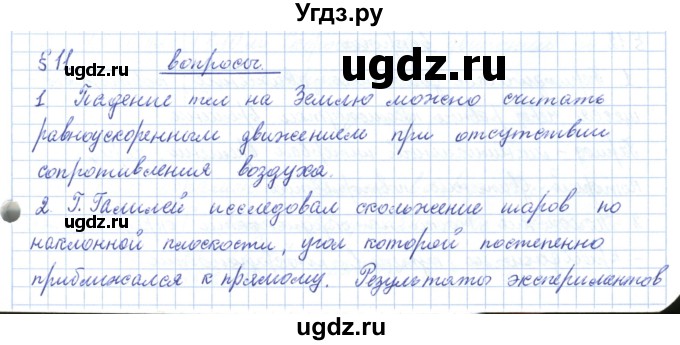 Угдз.ру
§ 11 вопросы.
ugdz.ru ugdz.ru
1 Падение тел на Землю можно считать
равноускоренным движением при отсутствии
сопротивления воздуха.
ugdz.ru ugdz.ru
2 Г. Галилей исследовал скольжение шаров по
наклонной плоскости, угол которой постепенно
приближался к прямому. Результаты экспериментов
ugdz.ru ugdz.ru
ugdz.ru